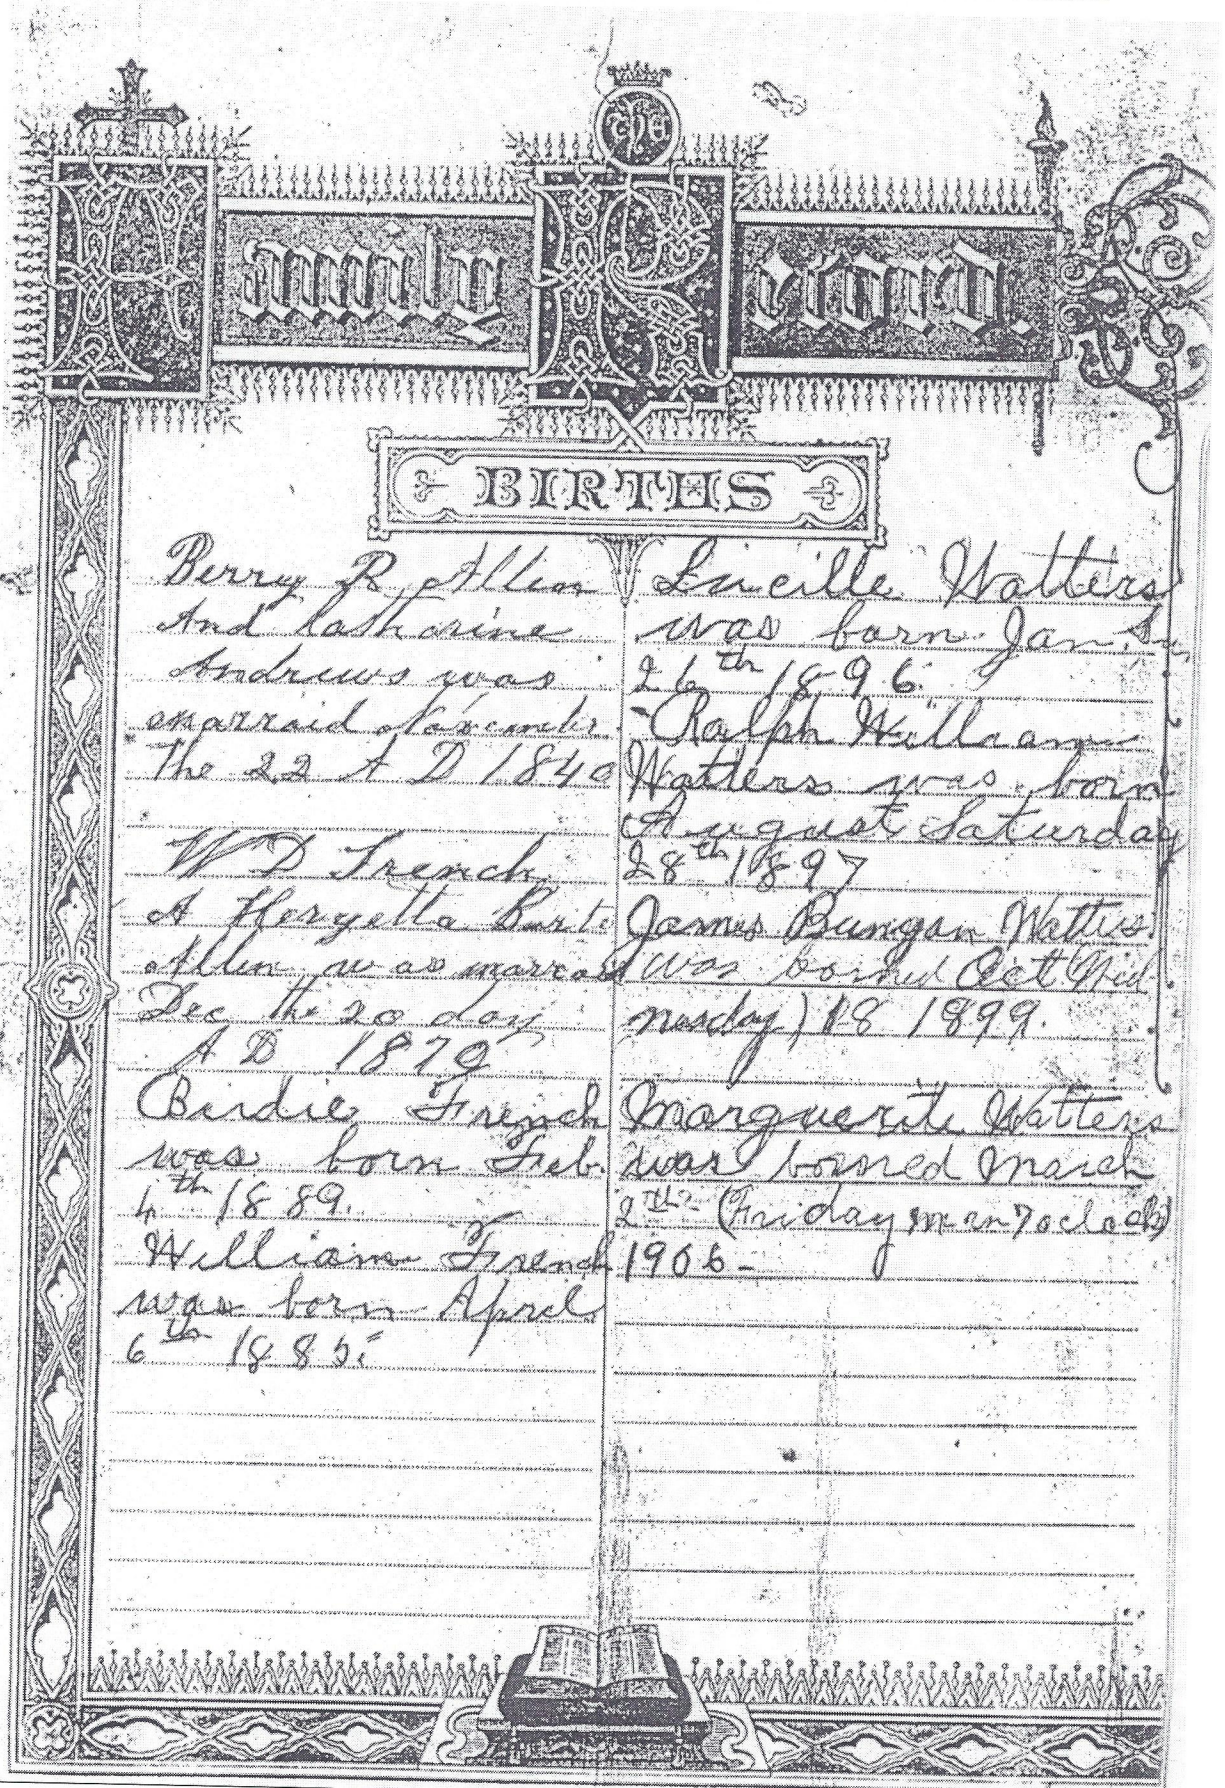 Family Record.
BIRTHS
Berry R Allen
And Katharine
Andrews was
marraid November
The 22 A D 1840
W D French
A Henryetta Burt
Allen was marraid
Dec the 20 day
A D 1879
Birdie French
was born Feb.
4th 1889.
William French
was born April
6th 1885.
Lucille Watters
was born Jan.
26th 1896.
Ralph William
Watters was born
August Saturday
28th 1897
James Bungan Watters
was borned Oct (Wed
nesday) 18 1899.
Marguerite Watters
was borned March
2nd (Friday morn 7 oclock)
1906-